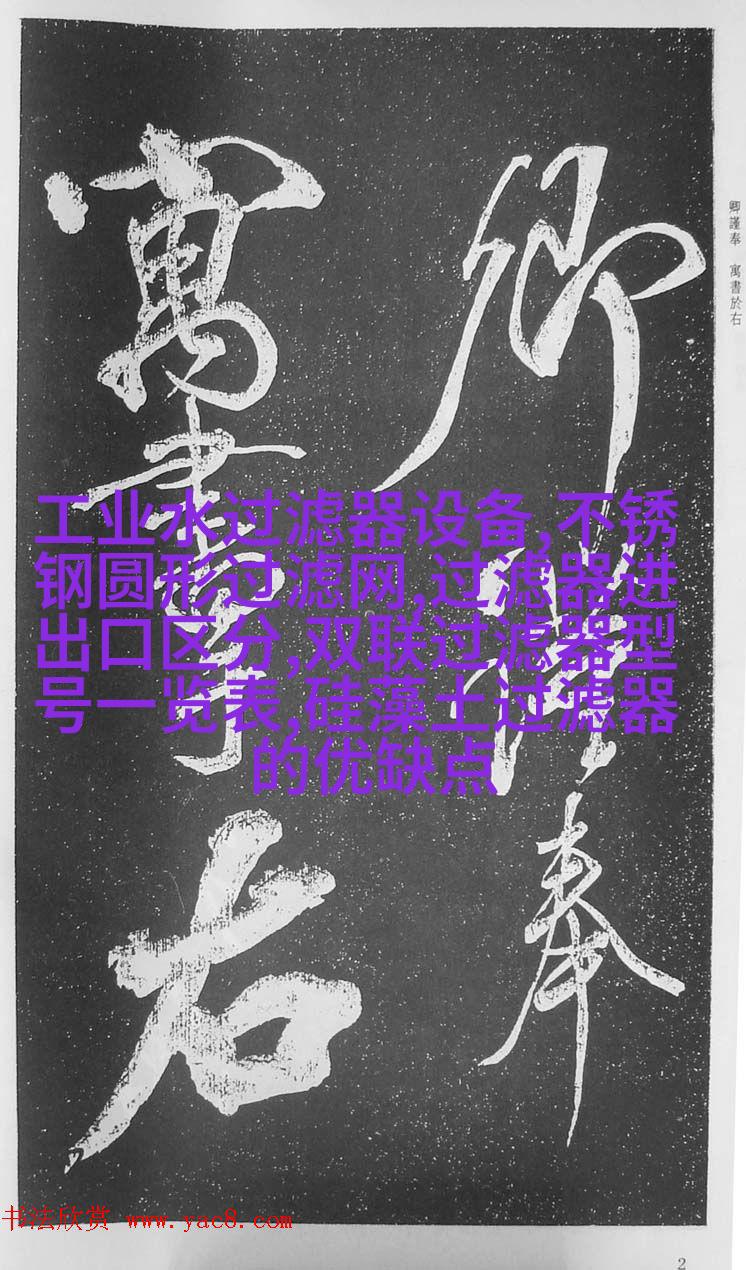 卿謹奉
寓書於右
卿謹奉 寓書於右
工业水过滤器设备,不锈
钢圆形过滤网,过滤器进
出口区分,双联过滤器型
号一览表,硅藻土过滤器
的优缺点
书法欣赏 www.yac8.com
2